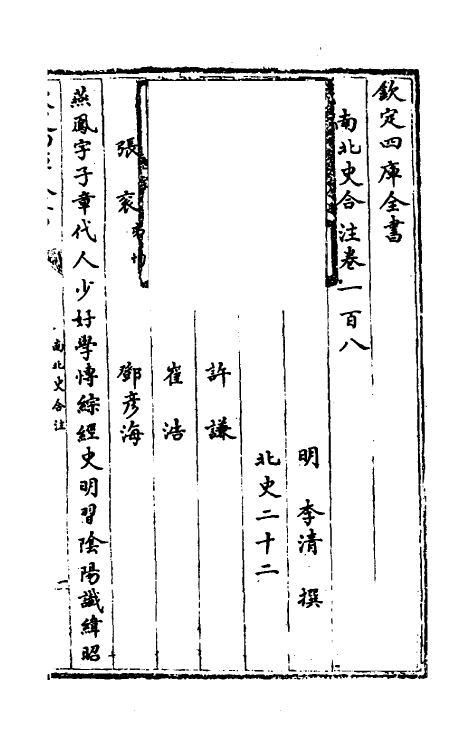 欽定四庫全書
南北史合注卷一百八
明 李清 撰
北史二十二
許謙
崔浩
張袞 鄧彥海
燕鳳字子章代人少好學博綜經史明習陰陽讖緯昭
南北史合注
一